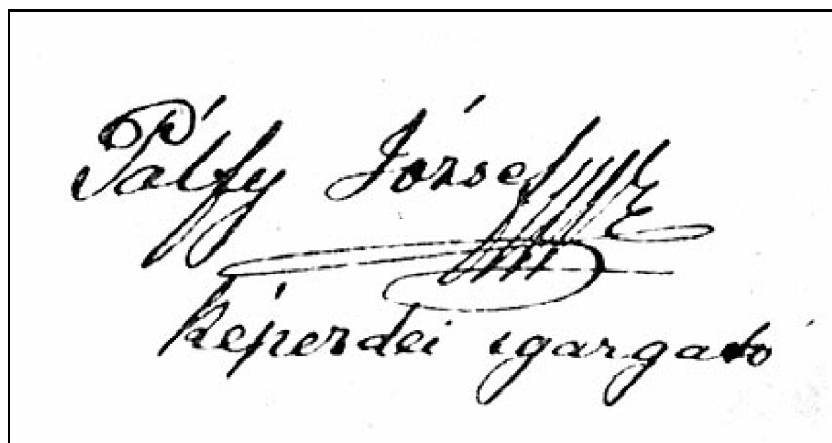 Pálfy József
képezdei igazgató